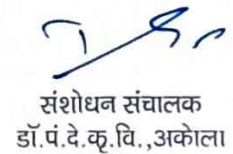 संशोधन संचालक
डॉ.पं.दे.कृ.वि.,अकोला